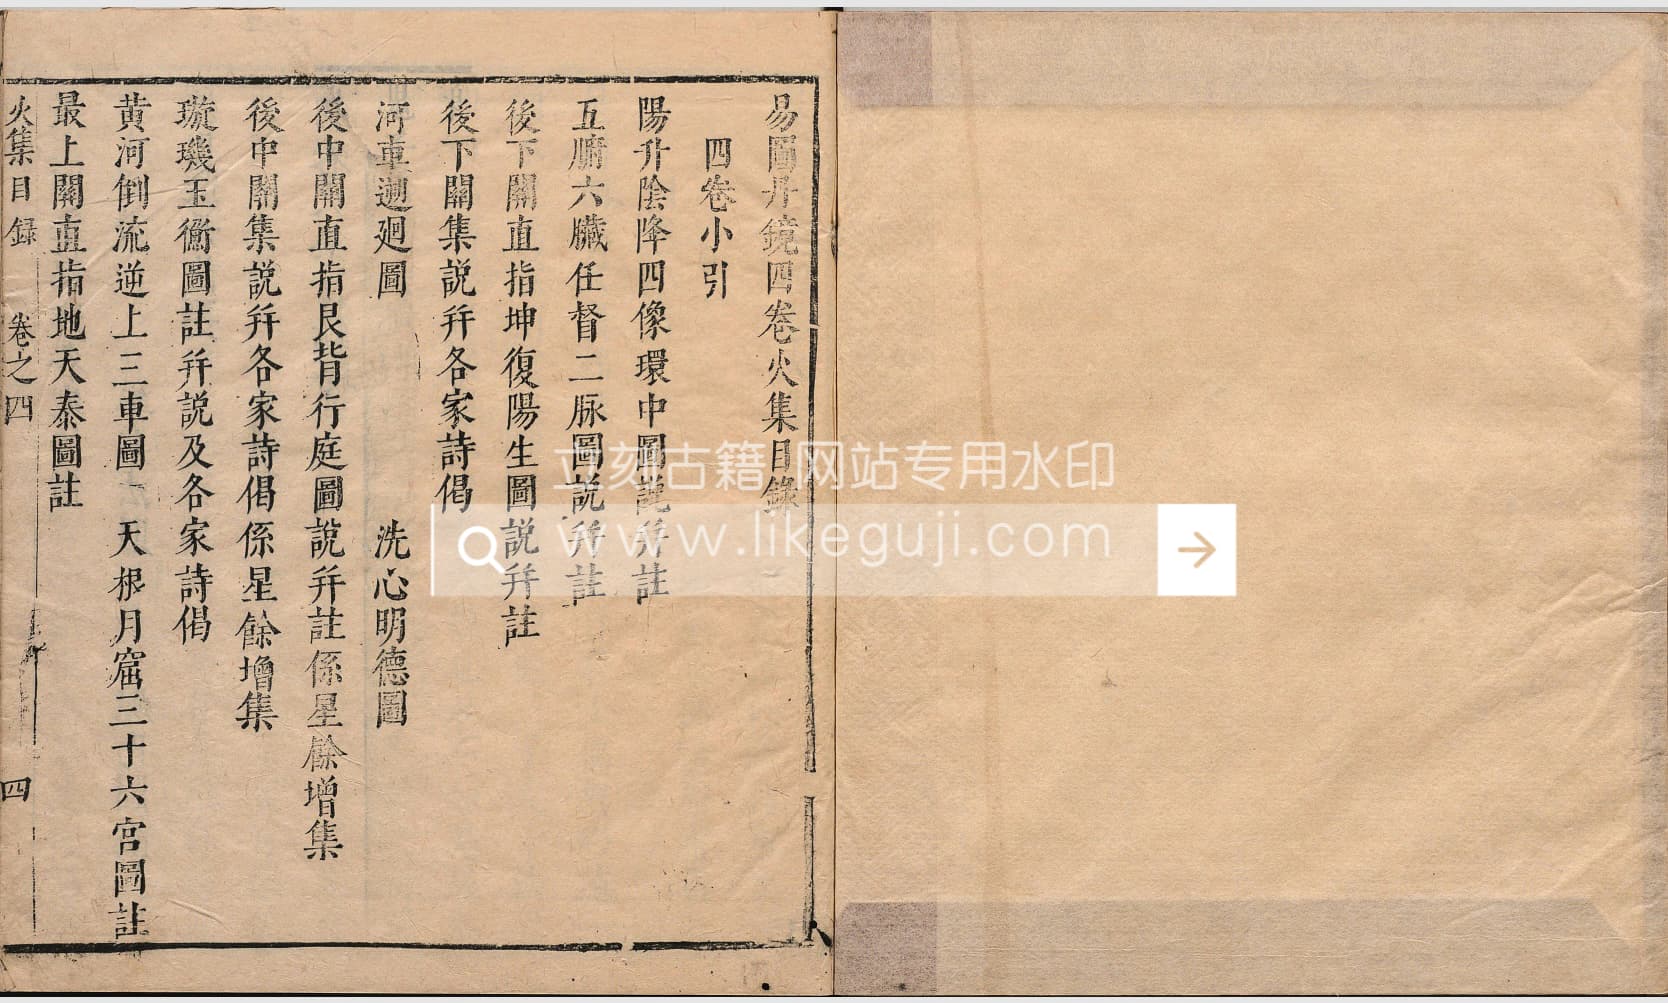 易圖丹鏡四卷火集目錄
四卷小引
陽升陰降四像環中圖説幷註
五腑六臟任督二脉圖説幷註
後下關直指坤復陽生圖説幷註
後下關集説幷各家詩偈
河車𨒪廻圖　洗心明德圖
後中關直指艮背行庭圖説幷註係星餘增集
後中關集説幷各家詩偈係星餘增集
璇璣玉衡圖註幷説及各家詩偈
黄河倒流逆上三車圖　天根月窟三十六宮圖註
最上關直指地天泰圖註
火集目録　卷之四　四
立刻古籍 网站专用水印
www.likeguji.com